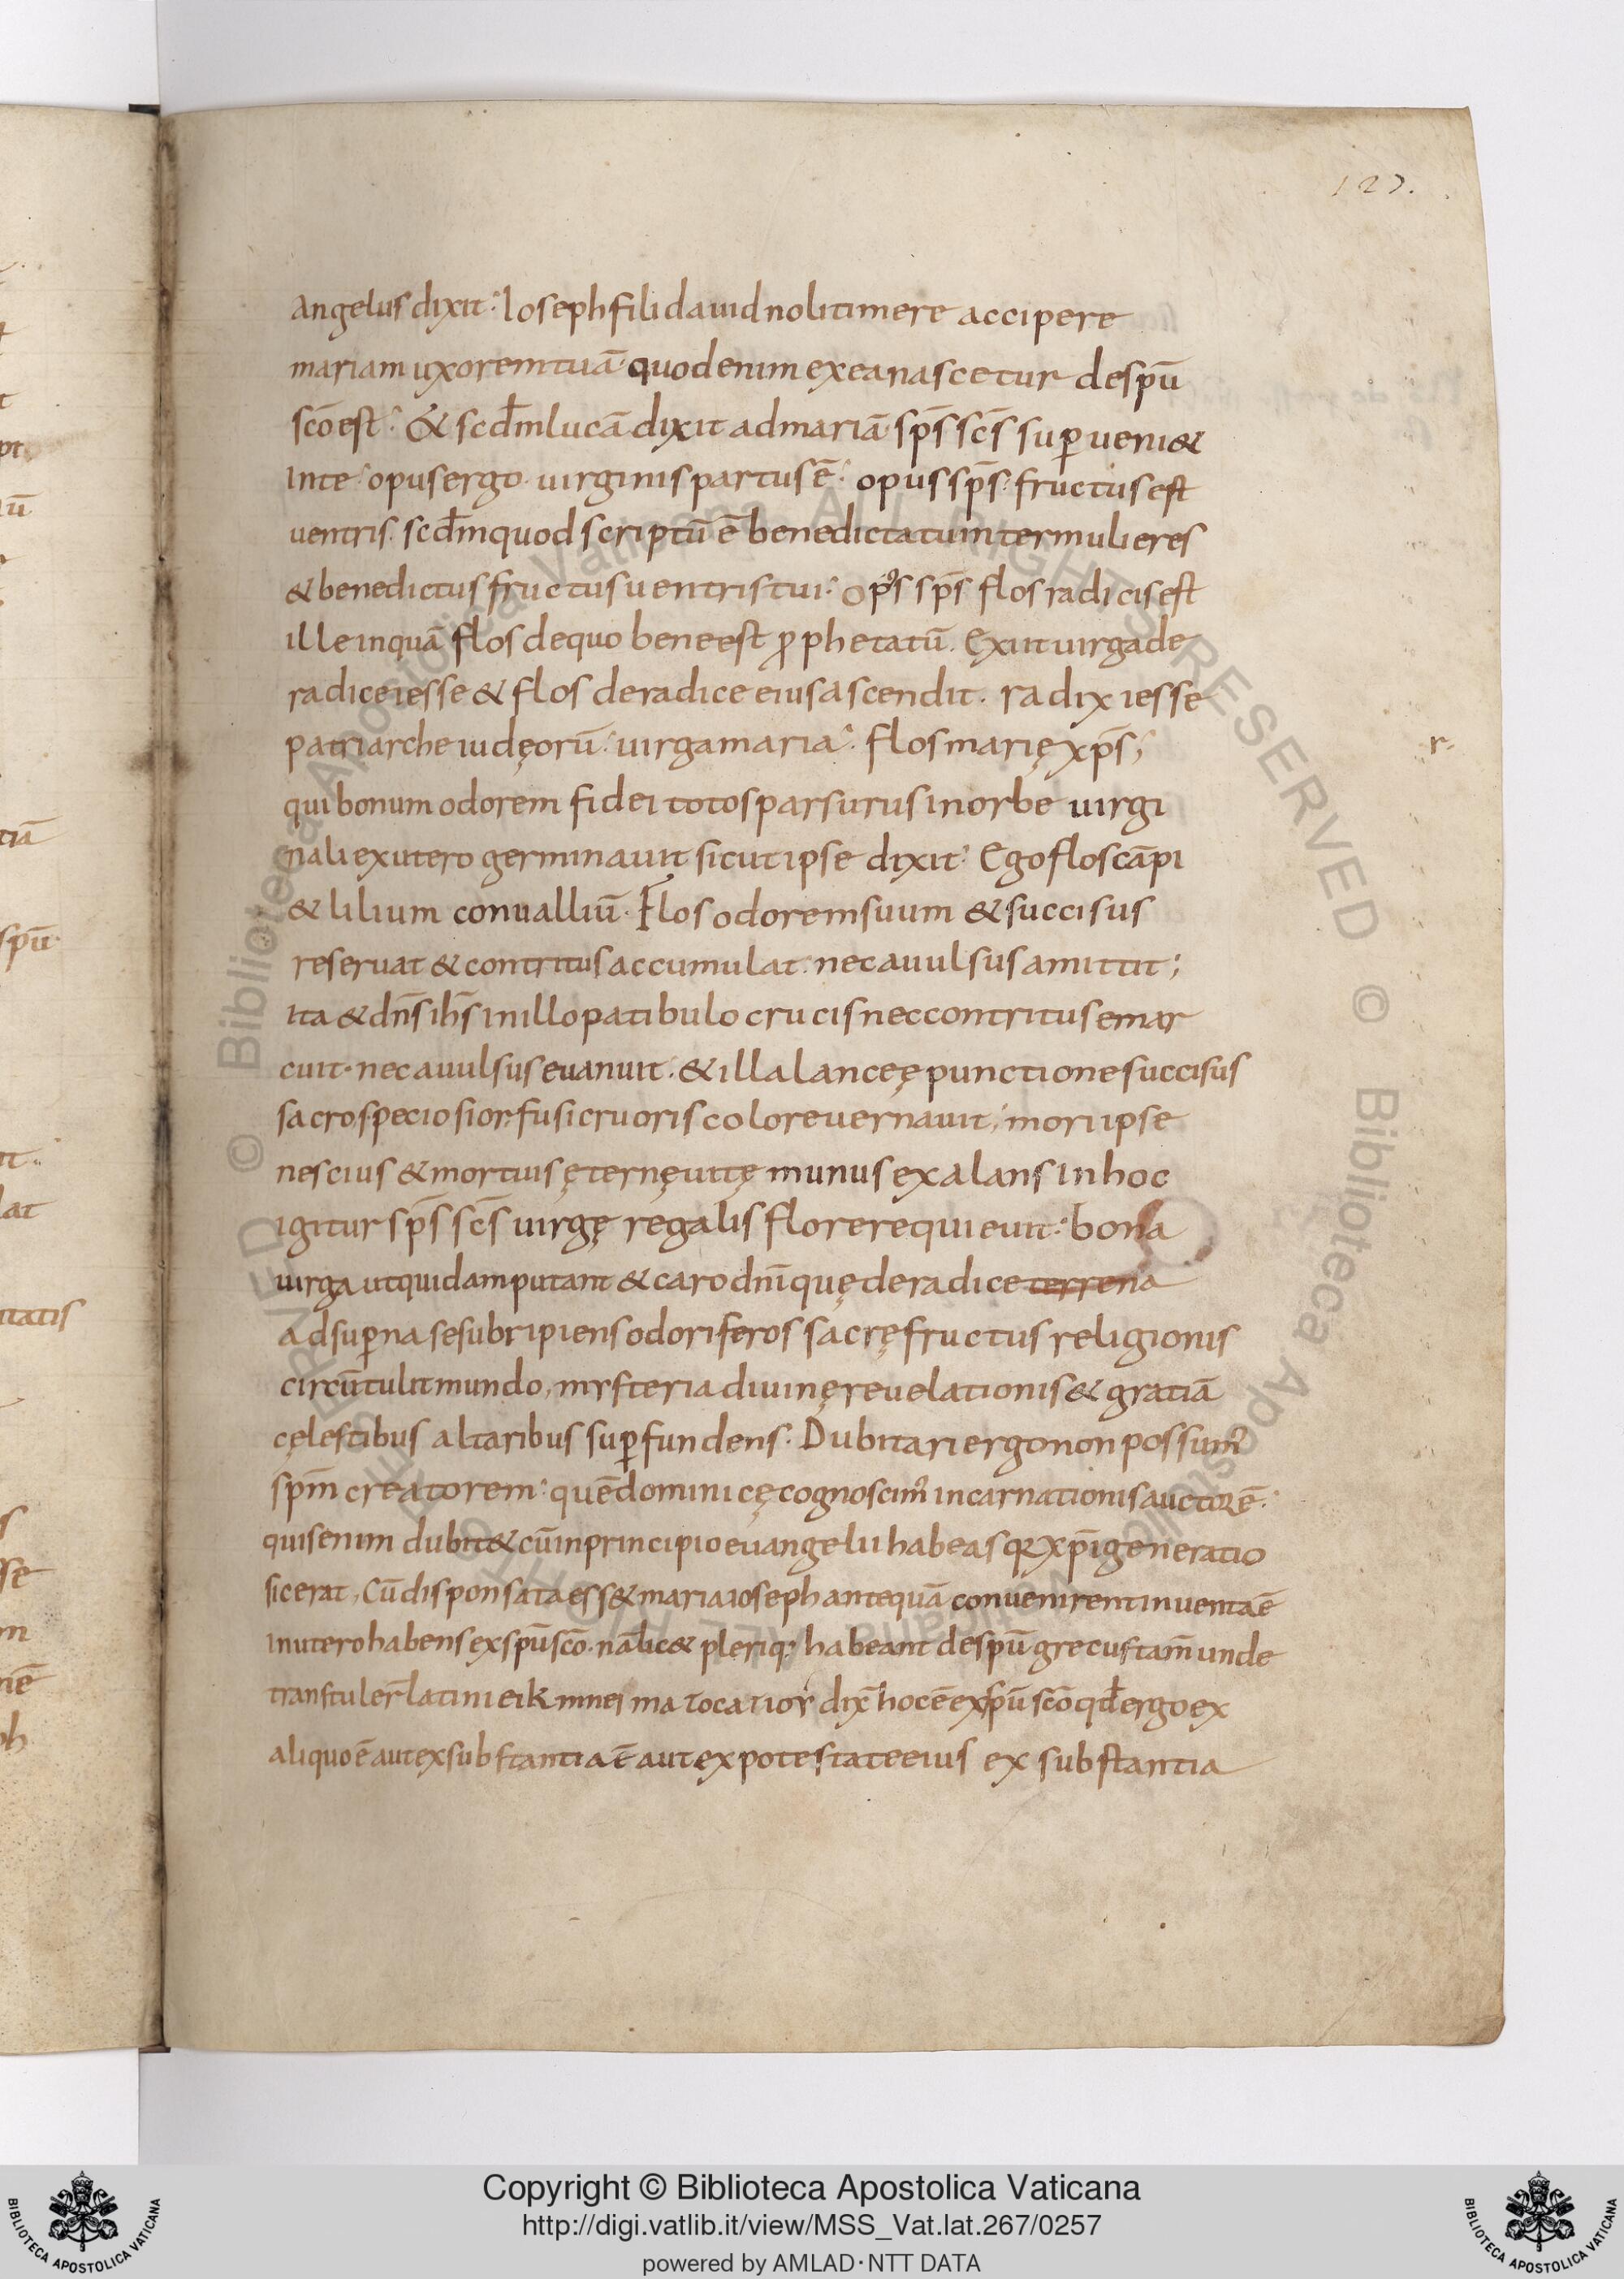 127.
angelus dixit: Ioseph fili dauid noli timere accipere
mariam uxorem tuā quod enim ex ea nascetur de spū
scō est: & scdm lucā dixit ad mariā sps̄ scs̄ sup ueni&
inte: opus ergo uirginis partus ē: opus sps̄: fructus est
uentris. scdm quod scriptū ē benedicta tu inter mulieres
& benedictus fructus uentris tui: opꝰs sps̄ flos radicis est
ille inquā flos de quo bene est ꝓphetatū. Exiit uirga de
radice iesse & flos de radice eius ascendit. radix iesse
patriarche iudęorū: uirga maria: flos marię xps̄;
r
qui bonum odorem fidei toto sparsurus in orbe uirgi
nali ex utero germinauit sicut ipse dixit: Ego flos cāpi
& lilium conualliū. Flos odorem suum & succisus
reseruat & contritus accumulat: nec auulsus amittit;
ita & dn̄s ihs̄ in illo patibulo crucis nec contritus emar
cuit. nec auulsus euanuit: & illa lanceę punctione succisus
sacro speciosior fusi cruoris colore uernauit, mori ipse
nescius & mortuis ęternę uitę munus exalans in hoc
igitur sps̄ scs̄ uirgę regalis flore requieuit: bona
uirga ut quidam putant & caro dnī quę de radice terrena
ad sup̄na se subripiens odoriferos sacrę fructus religionis
circūtulit mundo, mysteria diuinę reuelationis & gratiā
cęlestibus altaribus supfundens. Dubitari ergo non possumꝰ
spm̄ creatorem: quē dominicę cognoscimꝰ incarnationis auctorē.
quis enim dubit& cū in principio euangelii habeas qꝛ xpī generatio
sic erat, Cū disponsata ess& maria ioseph antequā conuenirent inuenta ē
in utero habens ex spū scō. nā lic& pleriq; habeant de spū grecus tam̄ unde
transtuler̄ latini dix̄ hoc ē ex spū scō qd̄ ergo ex
aliquo ē aut ex substantia ē aut ex potestate eius ex substantia
Copyright © Biblioteca Apostolica Vaticana
http://digi.vatlib.it/view/MSS_Vat.lat.267/0257
powered by AMLAD · NTT DATA
BIBLIOTECA APOSTOLICA VATICANA
BIBLIOTECA APOSTOLICA VATICANA